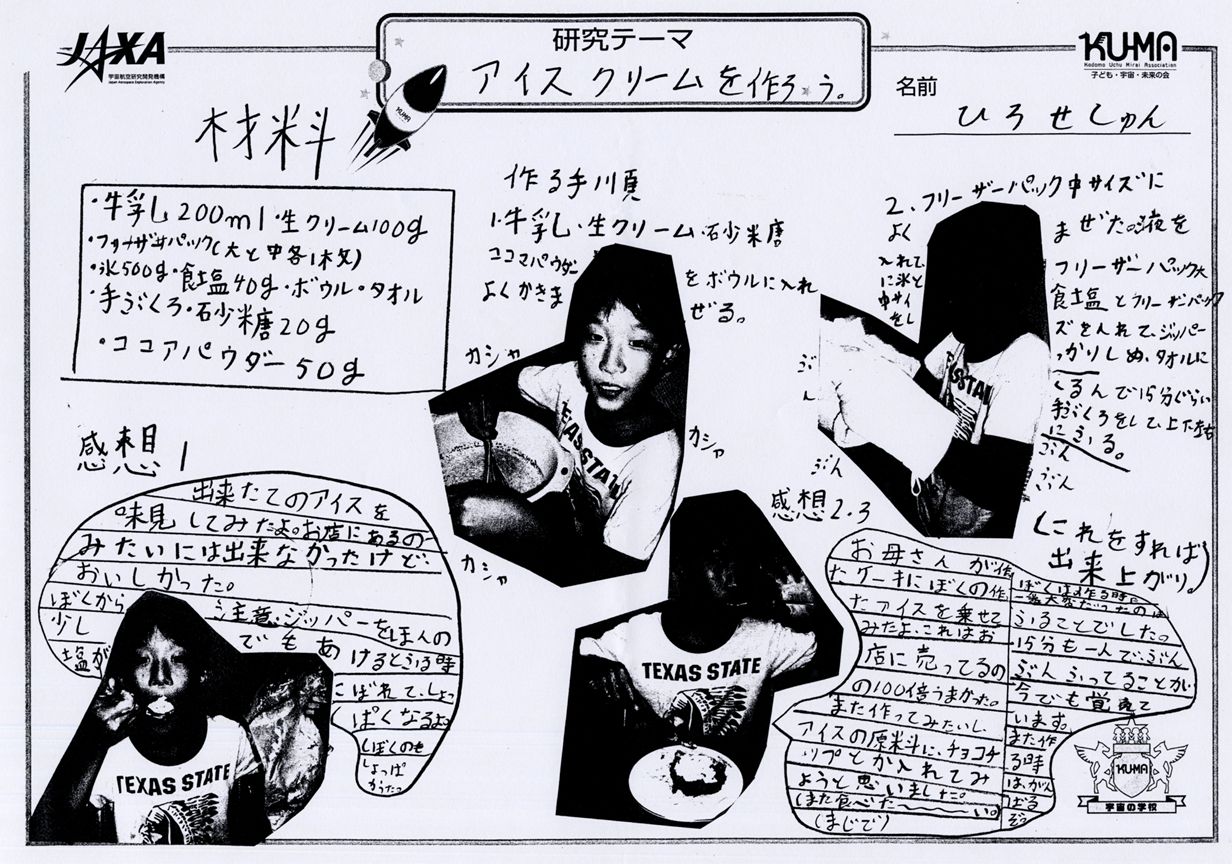 JAXA
宇宙航空研究開発機構
Japan Aerospace Exploration Agency
研究テーマ
アイスクリームを作ろう。
KUMA
Kodomo Uchu Mirai Association
子ども・宇宙・未来の会
名前
ひろせしゅん
KUMA
材料
・牛乳し200ml・生クリーム100g
・フリーザーパック(大と中各1枚)
・氷500g・食塩40g・ボウル・タオル
・手ぶくろ・砂糖20g
・ココアパウダー50g
作る手順
1.牛乳し・生クリーム・砂糖
ココアパウダーをボウルに入れ
よくかきまぜる。
カシャ
カシャ
カシャ
2.フリーザーパック中サイズに
よくまぜた液を
入れて、フリーザーパック大
に氷と食塩とフリーザーパック
中サイズを入れて、ジッパー
をしっかりしめ、タオルに
くるんで15分ぐらい
手ぶくろをして、上下左右
にふる。
ぶん
ぶん
ぶん
ぶん
(これをすれば
出来上がり。)
感想1
出来たてのアイスを
味見してみたよ。お店にあるの
みたいには出来なかったけど、
おいしかった。
ぼくから注意・ジッパーをほんの
少しでもあけるとふる時
塩がこぼれて、しょっ
ぱくなるよ。
しぼくのも
しょっぱ
かった
TEXAS STATE
TEXAS STATE
感想2.3
お母さんが作っ
たケーキにぼくの作っ
たアイスを乗せて
みたよ、これはお
店に売ってるの
の100倍うまかった。
また作ってみたいし、
アイスの原米斗に、チョコチ
ップとか入れてみ
ようと思いました。
(また食べた〜い。
(まじで)
ぼくは作る時に
一番大変だったのは
ふることでした。
15分も一人で、ぶん
ぶんふってることが、
今でも覚えて
います。
また作
る時
は、がん
ばる
ぞ。
KU-MA
宇宙の学校